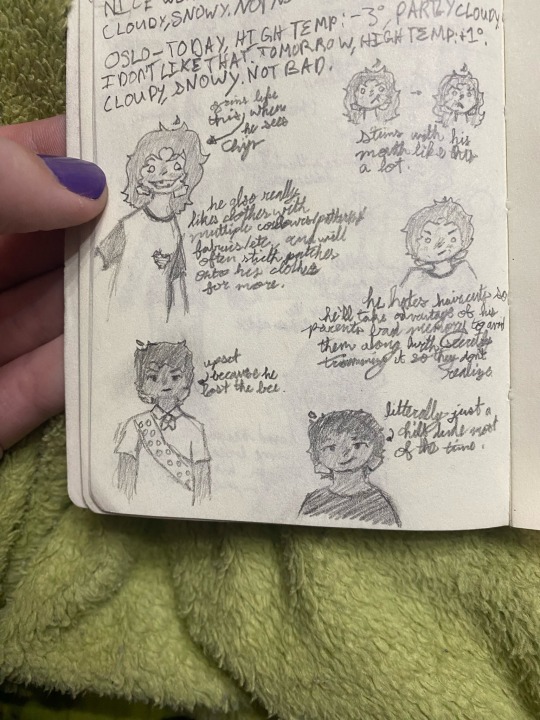 NICE
CLOUDY, SNOWY. NOT
OSLO-TODAY, HIGH TEMP: -3°, PARTLY CLOUDY
I DON'T LIKE THAT. TOMORROW, HIGH TEMP: +1°.
CLOUPY, SNOWY. NOT BAD.
grins like
this, when
he sees
Chip
stims with his
mouth like this
a lot.
he also really
likes clothes with
multiple colours/patterns/
fabrics/etc, and will
often stich patches
onto his clothes
for more.
he hates haircuts so
he'll take advantage of his
parents bad memory to
them along with secretly
trimming it so they dont
realize
upset
because he
lost the bee.
litterally just a
chill dude most
of the time.